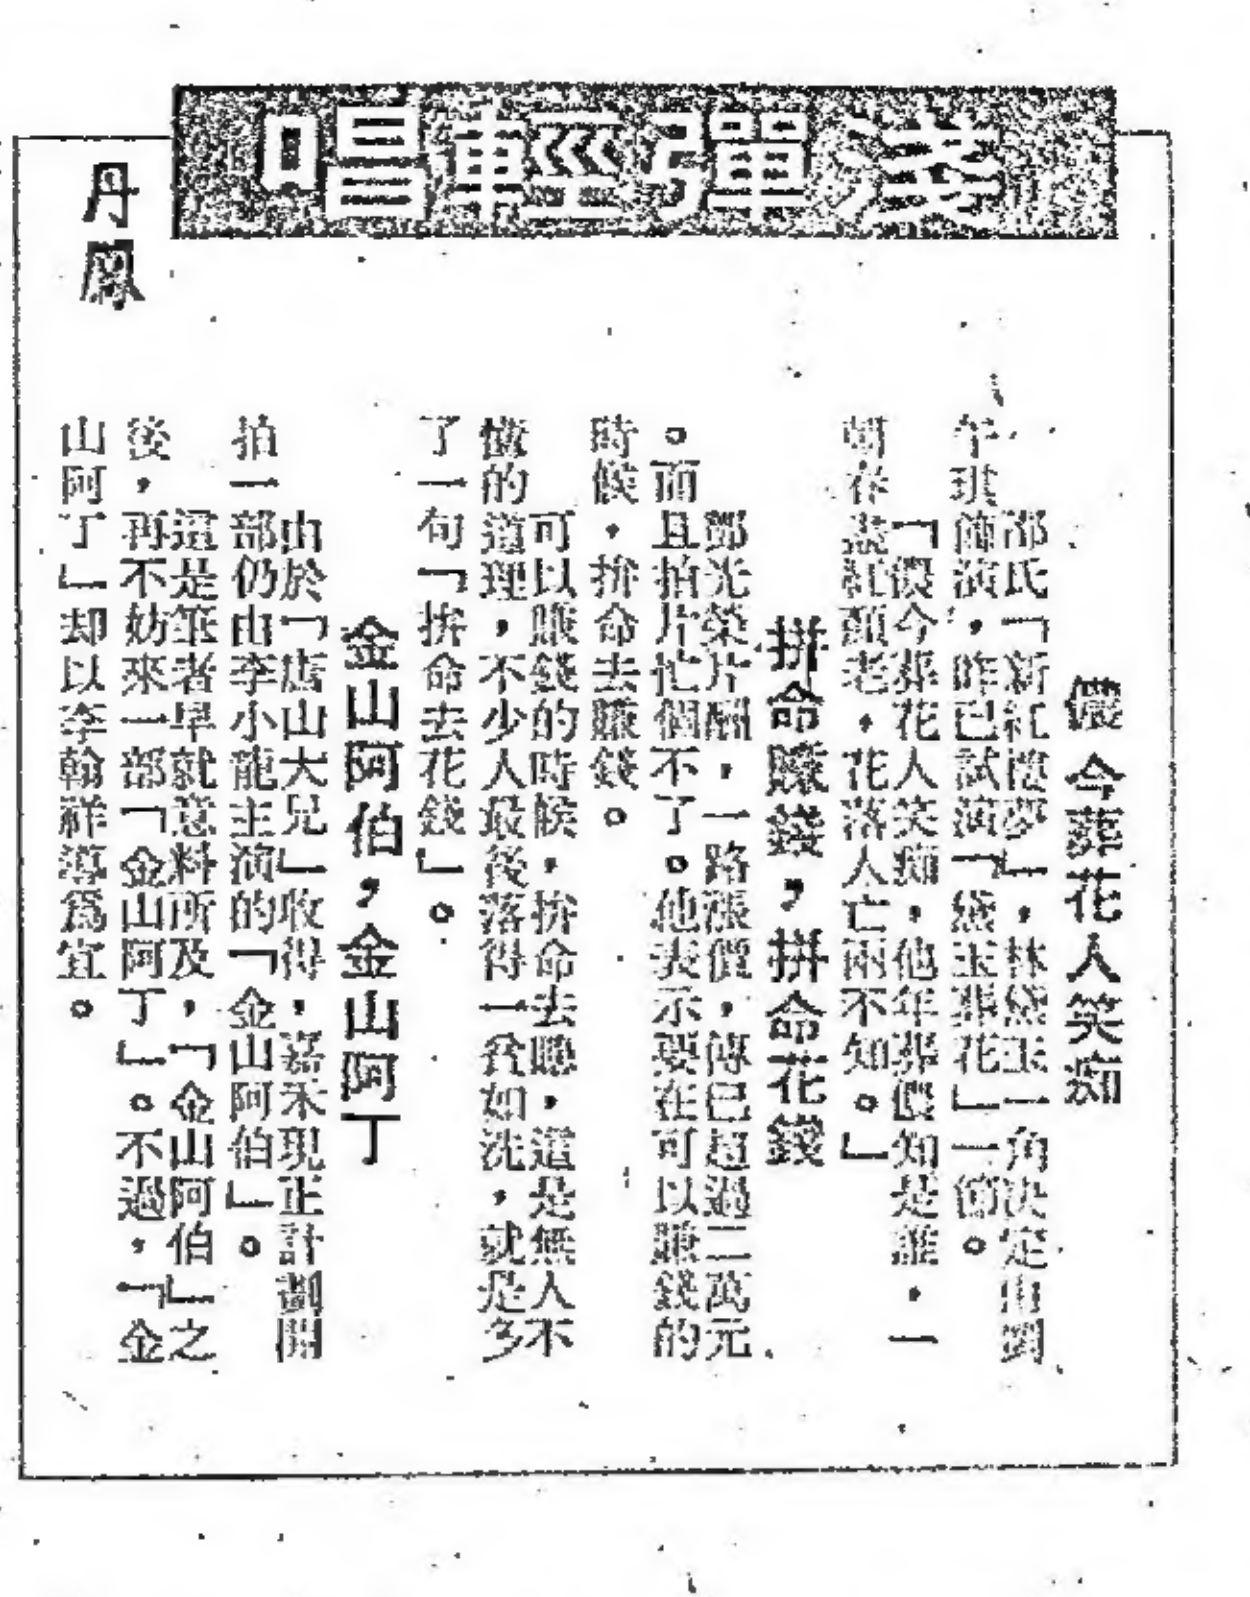 唱輕彈淺
丹鳳
儂今葬花人笑痴
邵氏「新紅樓夢」，林黛玉一角決定由劉
午琪飾演，昨已試演「黛玉葬花」一節。
「儂今葬花人笑痴，他年葬儂知是誰，一
朝春盡紅顏老，花落人亡兩不知。」
拼命賺錢，拼命花錢
鄧光榮片酬，一路漲價，傳已超過二萬元
。而且拍片忙個不了。他表示要在可以賺錢的
時候，拚命去賺錢。
可以賺錢的時候，拚命去賺，這是無人不
懂的道理，不少人最後落得一貧如洗，就是多
了一句「拚命去花錢」。
金山阿伯，金山阿丁
由於「唐山大兄」收得，嘉禾現正計劃開
拍一部仍由李小龍主演的「金山阿伯」。
這是筆者早就意料所及，「金山阿伯」之
後，再不妨來一部「金山阿丁」。不過，「金
山阿丁」却以李翰祥導為宜。